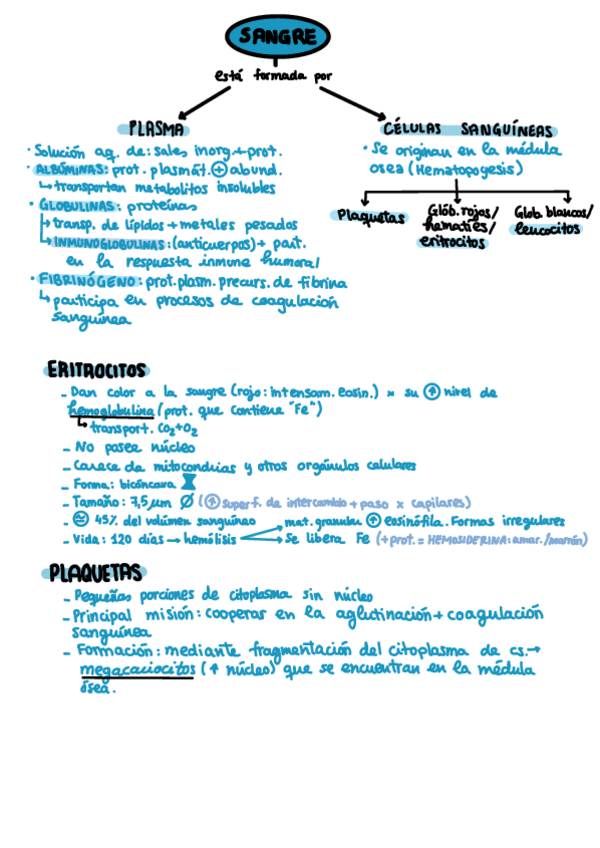 SANGRE
está formada por
PLASMA
· Solución aq. de: sales inorg. + prot.
· ALBÚMINAS: prot. plasmát. ⊕ abund.
↳ transportan metabolitos insolubles
· GLOBULINAS: proteínas
↳ transp. de lípidos + metales pesados
↳ INMUNOGLOBULINAS: (anticuerpos) + part.
en la respuesta inmune humoral
· FIBRINÓGENO: prot. plasm. precurs. de fibrina
↳ participa en procesos de coagulación
sanguínea
CÉLULAS SANGUÍNEAS
· Se originan en la médula
osea (Hematopogesis)
Plaquetas
Glób. rojos/
hematíes/
eritrocitos
Glob. blancos/
leucocitos
ERITROCITOS
- Dan color a la sangre (rojo: intensam. eosin.) × su ↑ nivel de
hemoglobulina (prot. que contiene "Fe")
↳ transport. CO2 + O2
- No posee núcleo
- Carece de mitocondrias y otros orgánulos celulares
- Forma: bicóncava
- Tamaño: 7,5 µm Ø (↑ superf. de intercambio + paso x capilares)
- ≅ 45% del volúmen sanguíneo
- Vida: 120 días → hemólisis
mat. granular ↑ eosinófila. Formas irregulares
Se libera Fe (+ prot. = HEMOSIDERINA: amar./marrón)
PLAQUETAS
- Pequeñas porciones de citoplasma sin núcleo
- Principal misión: cooperar en la aglutinación + coagulación
sanguínea
- Formación: mediante fragmentación del citoplasma de cs. →
megacariocitos (↑ núcleo) que se encuentran en la médula
ósea.